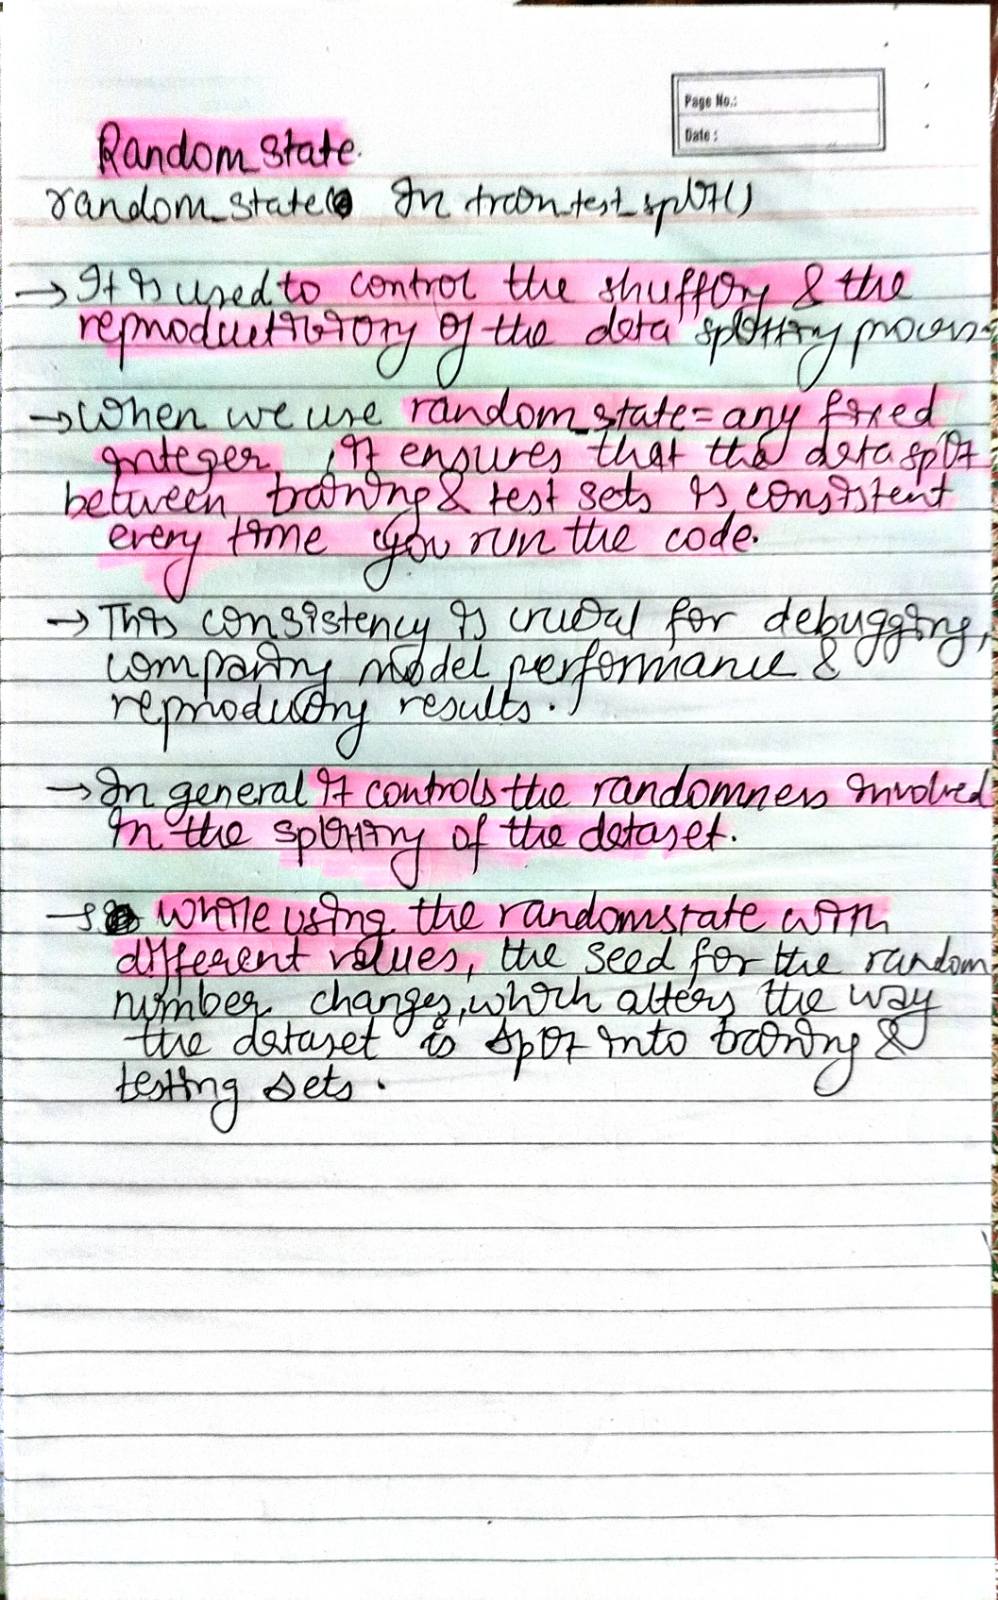 Page No.:
Date :
Random_state.
random_state In train_test_split()
→ It is used to control the shuffling & the
reproductibility of the data splitting process
→ When we use random_state = any fixed
integer, it ensures that the data split
between training & test sets is consistent
every time you run the code.
→ This consistency is crucial for debugging,
comparing model performance &
reproducing results.
→ In general it controls the randomness involved
in the splitting of the dataset.
→ while using the randomstate with
different values, the seed for the random
number changes, which alters the way
the dataset is split into training &
testing sets.